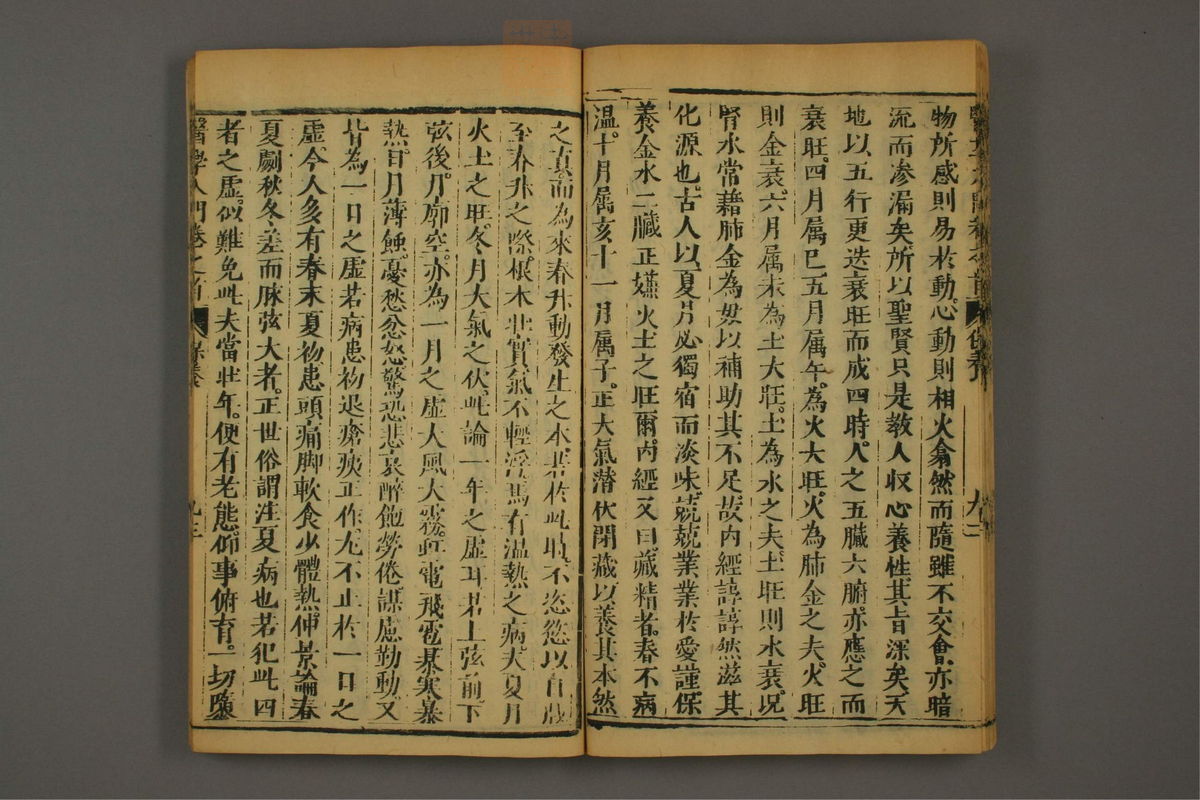 醫學入門卷之首 保養 九二
物所感則易於動。心動則相火翕然而隨雖不交會。亦暗
流而滲漏矣。所以聖賢只是教人收心養性其旨深矣。天
地以五行更迭衰旺而成四時。人之五臟六腑。亦應之而
衰旺。四月属巳五月属午。為火大旺。火為肺金之夫。火旺
則金衰。六月属未為土大旺。土為水之夫。土旺則水衰。况
腎水常藉肺金為母以補助其不足。故内經諄諄然滋其
化源也。古人以夏月必獨宿而淡味。兢兢業業於愛謹。保
養金水二臟正嫌火土之旺爾。内經又曰。藏精者。春不病
温。十月属亥。十一月属子。正大氣潜伏閉藏。以養其本然
之真。而為來春升動發生之本。若於此時。不恣慾以自戕
至春升之際。根本壯實氣不輕浮焉有温熱之病。夫夏月
火土之旺。冬月大氣之伏。此論一年之虛耳。若上弦前。下
弦後。月廓空。亦為一月之虛。大風大霧。虹電飛雹暴寒暴
熱。日月薄蝕。憂愁忿怒驚恐悲哀醉飽勞倦謀慮勤動。又
皆為一日之虛若病患初退瘡痍正作。尤不止於一日之
虛。今人多有春末夏初患頭痛脚軟食少體熱。仲景論春
夏劇秋冬差而脉弦大者。正世俗謂注夏病也。若犯此四
者之虛。似難免此。夫當壯年。便有老態。仰事俯育。一切隳
醫學入門卷之首 保養 九三